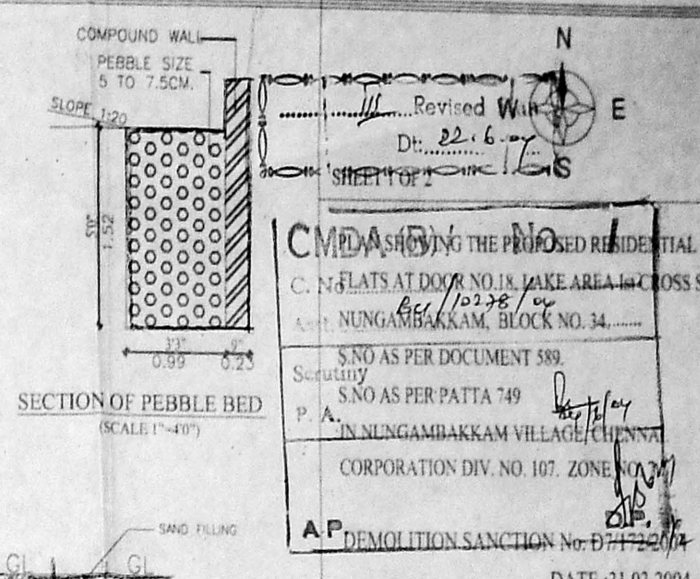 COMPOUND WALL
PEBBLE SIZE
5 TO 7.5CM.
SLOPE 1:20
5'0"
1.52
3'3"
0.99
9"
0.23
SECTION OF PEBBLE BED
(SCALE 1"=4'0")
SAND FILLING
GL
GL
N
E
S
W
III Revised
Dt: 22.6.04
SHEET 1 OF 2
CMDA (B) No. 1
PLAN SHOWING THE PROPOSED RESIDENTIAL
C. No.
FLATS AT DOOR NO.18, LAKE AREA 1st CROSS S
NUNGAMBAKKAM, BLOCK NO. 34,
S.NO AS PER DOCUMENT 589.
Scrutiny
S.NO AS PER PATTA 749
P. A.
IN NUNGAMBAKKAM VILLAGE, CHENNAI
CORPORATION DIV. NO. 107. ZONE NO.
A P
DEMOLITION SANCTION No. D7/172/2004
DATE :31.03.2004